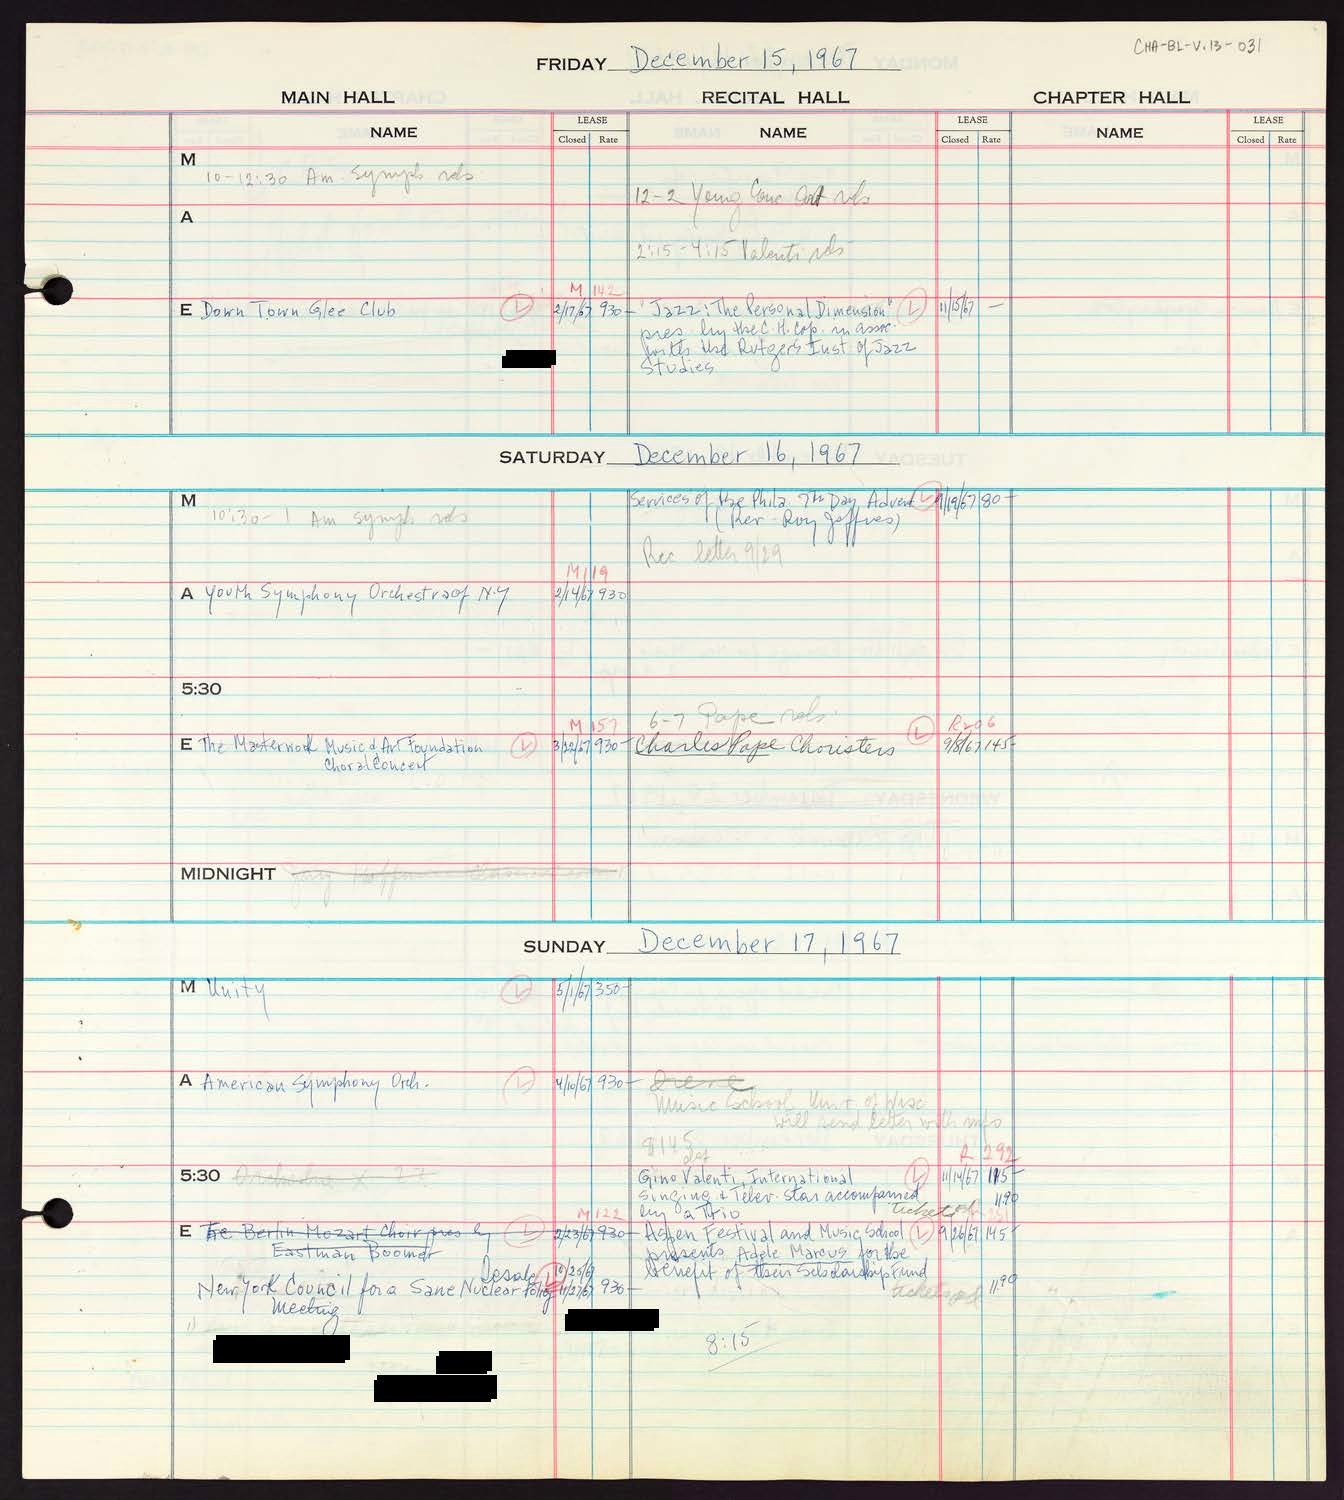 CHA-BL-V.13-031
FRIDAY December 15, 1967
MAIN HALL RECITAL HALL CHAPTER HALL
NAME LEASE Closed Rate NAME LEASE Closed Rate NAME LEASE Closed Rate
M
10-12:30 Am. Symph rehs
12-2 Young rehs
A
2:15-4:15 Valenti rehs
M 142
E Down Town Glee Club L 2/17/67 930- "Jazz: The Personal Dimension" L 11/15/67 -
pres. by the C.H. Corp. in assoc.
with the Rutgers Inst of Jazz
Studies
SATURDAY December 16, 1967
M Services of the Phila. 7th Day Advent L 9/19/67 80-
(Rev. Roy Jeffres)
10:30-1 Am symph rehs
Rec letter 9/29
M 119
A Youth Symphony Orchestra of N.Y 2/14/67 930
5:30
6-7 Pape rehs.
M 157 L R206
E The Masterwork Music & Art Foundation L 3/22/67 930- Charles Pape Choristers 9/8/67 145-
Choral Concert
MIDNIGHT
SUNDAY December 17, 1967
M Unity L 5/1/67 350-
A American Symphony Orch. L 4/10/67 930-
Music School Univ. of Wisc
will send letter with info
8:45
R 292
5:30 Orchestra Gino Valenti, International L 11/14/67 115-
Singing & Telev. Star accompanied 1190
by a Trio tickets
M 122
E The Berlin Mozart Choir pres by L 2/23/67 930- Aspen Festival and Music School L 9/26/67 145-
Eastman Boomer presents Adele Marcus for the
Resale L 10/20/67 benefit of their Scholarship Fund
New York Council for a Sane Nuclear Policy 11/27/67 930- tickets 1190
Meeting
8:15